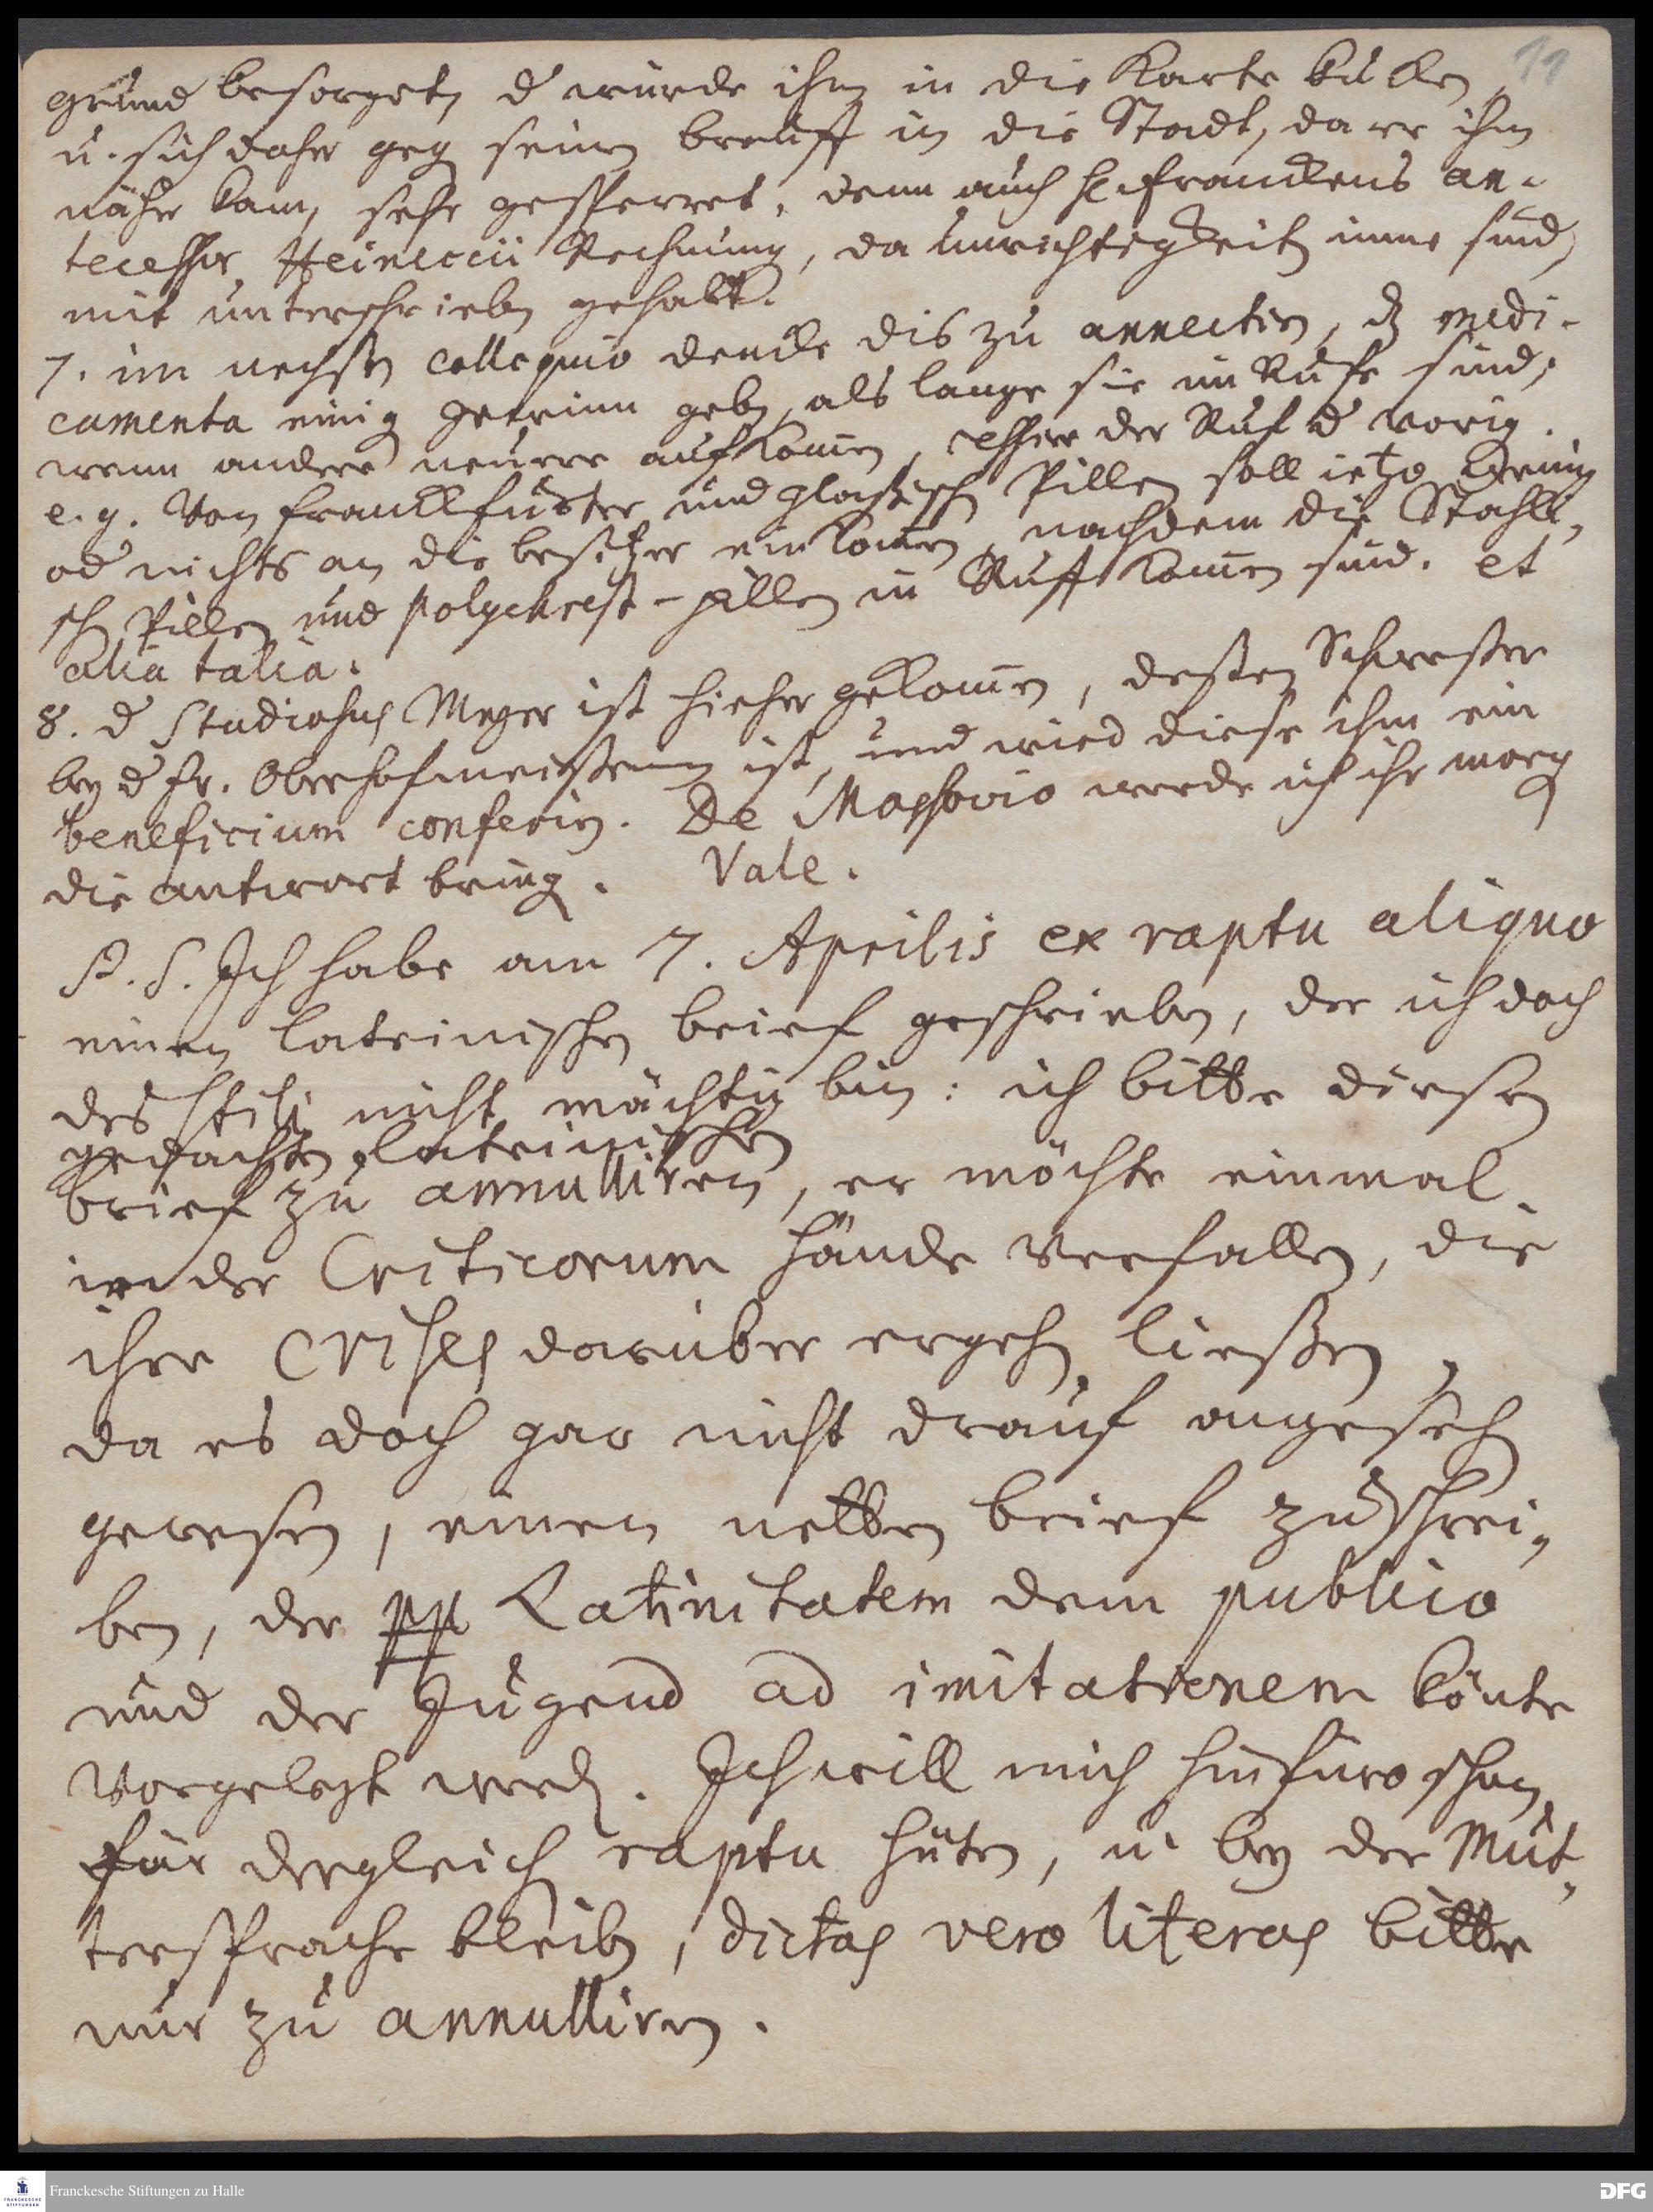 11
grund besorget, d würde ihm in die Karte kucken,
u. sich daher geg seinen beruff in die Stadt, da er ihm
näher kam, sehr gesperret, denn auch H. Franckens an-
tecessor Heineccii Rechnung, da unrichtigkeiten inne sind,
mit unterschrieben gehabt.
7. im nechsten colloquio dencke dis zu annectiren, dz medi-
camenta einig gewinn geben, als lange sie im Rufe sind;
wenn andere neuere aufkomen, cessire der Ruf d vorig.
e.g. Von Franckfurter und
Pillen soll ietzo wenig
od nichts an die besitzer einkomen, nachdem die Stahli-
schen Pillen und polychrest-pillen in Ruff komen sind. et
alia talia.
8. d Studiosus Meyer ist hieher gekomen, dessen Schwester
bey d Fr. Oberhofmeisterin ist, und wird diese ihm ein
beneficium conferiren. De Massovio werde ich ihr morg
die antwort bring. Vale.
P. S. Ich habe am 7. Aprilis ex raptu aliquo
einen lateinischen brief geschrieben, der ich doch
des stili nicht mächtig bin: ich bitte diesen
gedachten lateinischen
brief zu annulliren, er möchte einmal
in der Criticorum hände verfallen, die
ihre crises darüber ergehen ließen,
da es doch gar nicht drauf angesehen
gewesen, einen netten brief zu schrei-
ben, der pp Latinitatem dem publico
und der Jugend ad imitationem könte
vorgelegt werden. Ich will mich hinfüro schon
für dergleichen raptu hüten, u. bey der Mut-
tersprache bleiben, dictas vero literas bitte
nur zu annulliren.
FRANCKESCHE STIFTUNGEN
Franckesche Stiftungen zu Halle
DFG